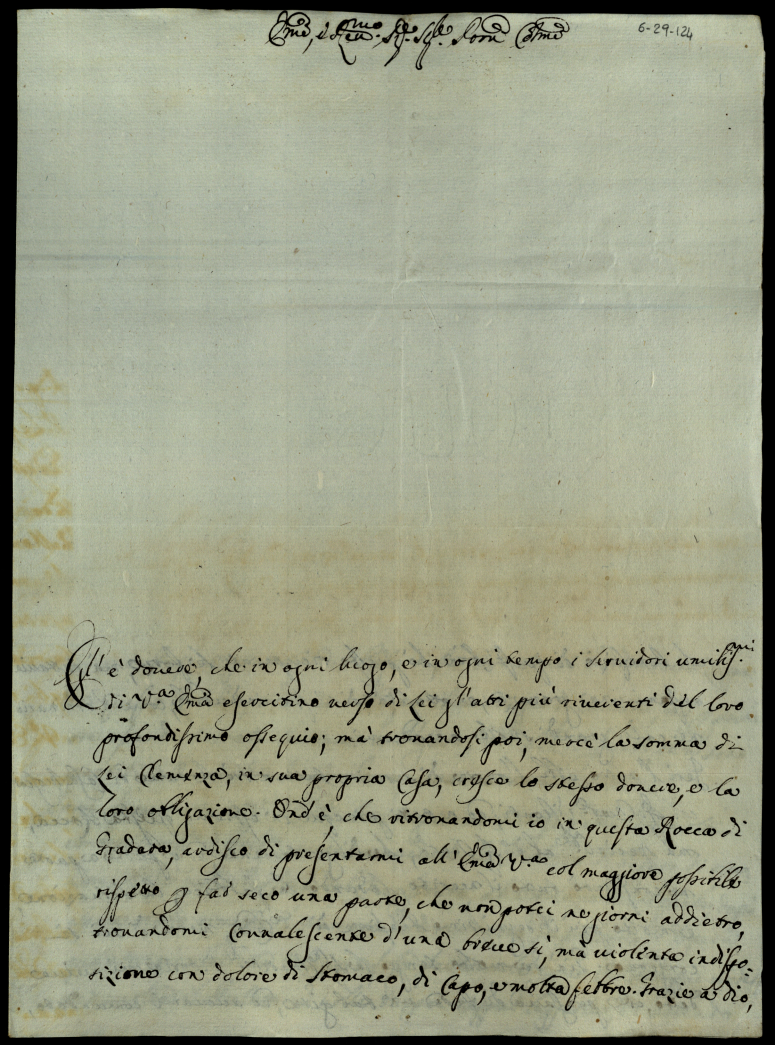 Em̃o, e Reu.mo Sig.re Sig.re Pr͠on Col͠mo
6-29-124
Gl'è douere, che in ogni luogo, e in ogni tempo i seruidori umiliss.mi
di V.a Em͠a esercitino uerso di Lei gl'atti più riuerenti del loro
profondissimo ossequio; mà trouandosi poi, mercè la somma di
Lei Clemenza, in sua propria Casa, cresce lo stesso douere, e la
loro obligazione. Ond'è, che ritrouandomi io in questa Rocca di
Gradara, ardisco di presentarmi all'Em͠a V.a col maggiore possibile
rispetto p far seco una parte, che non potei ne giorni addietro,
trouandomi Conualescente d'una breue sì, mà uiolenta indispo-
sizione con dolore di Stomaco, di Capo, e molta febbre. Grazie a dio,